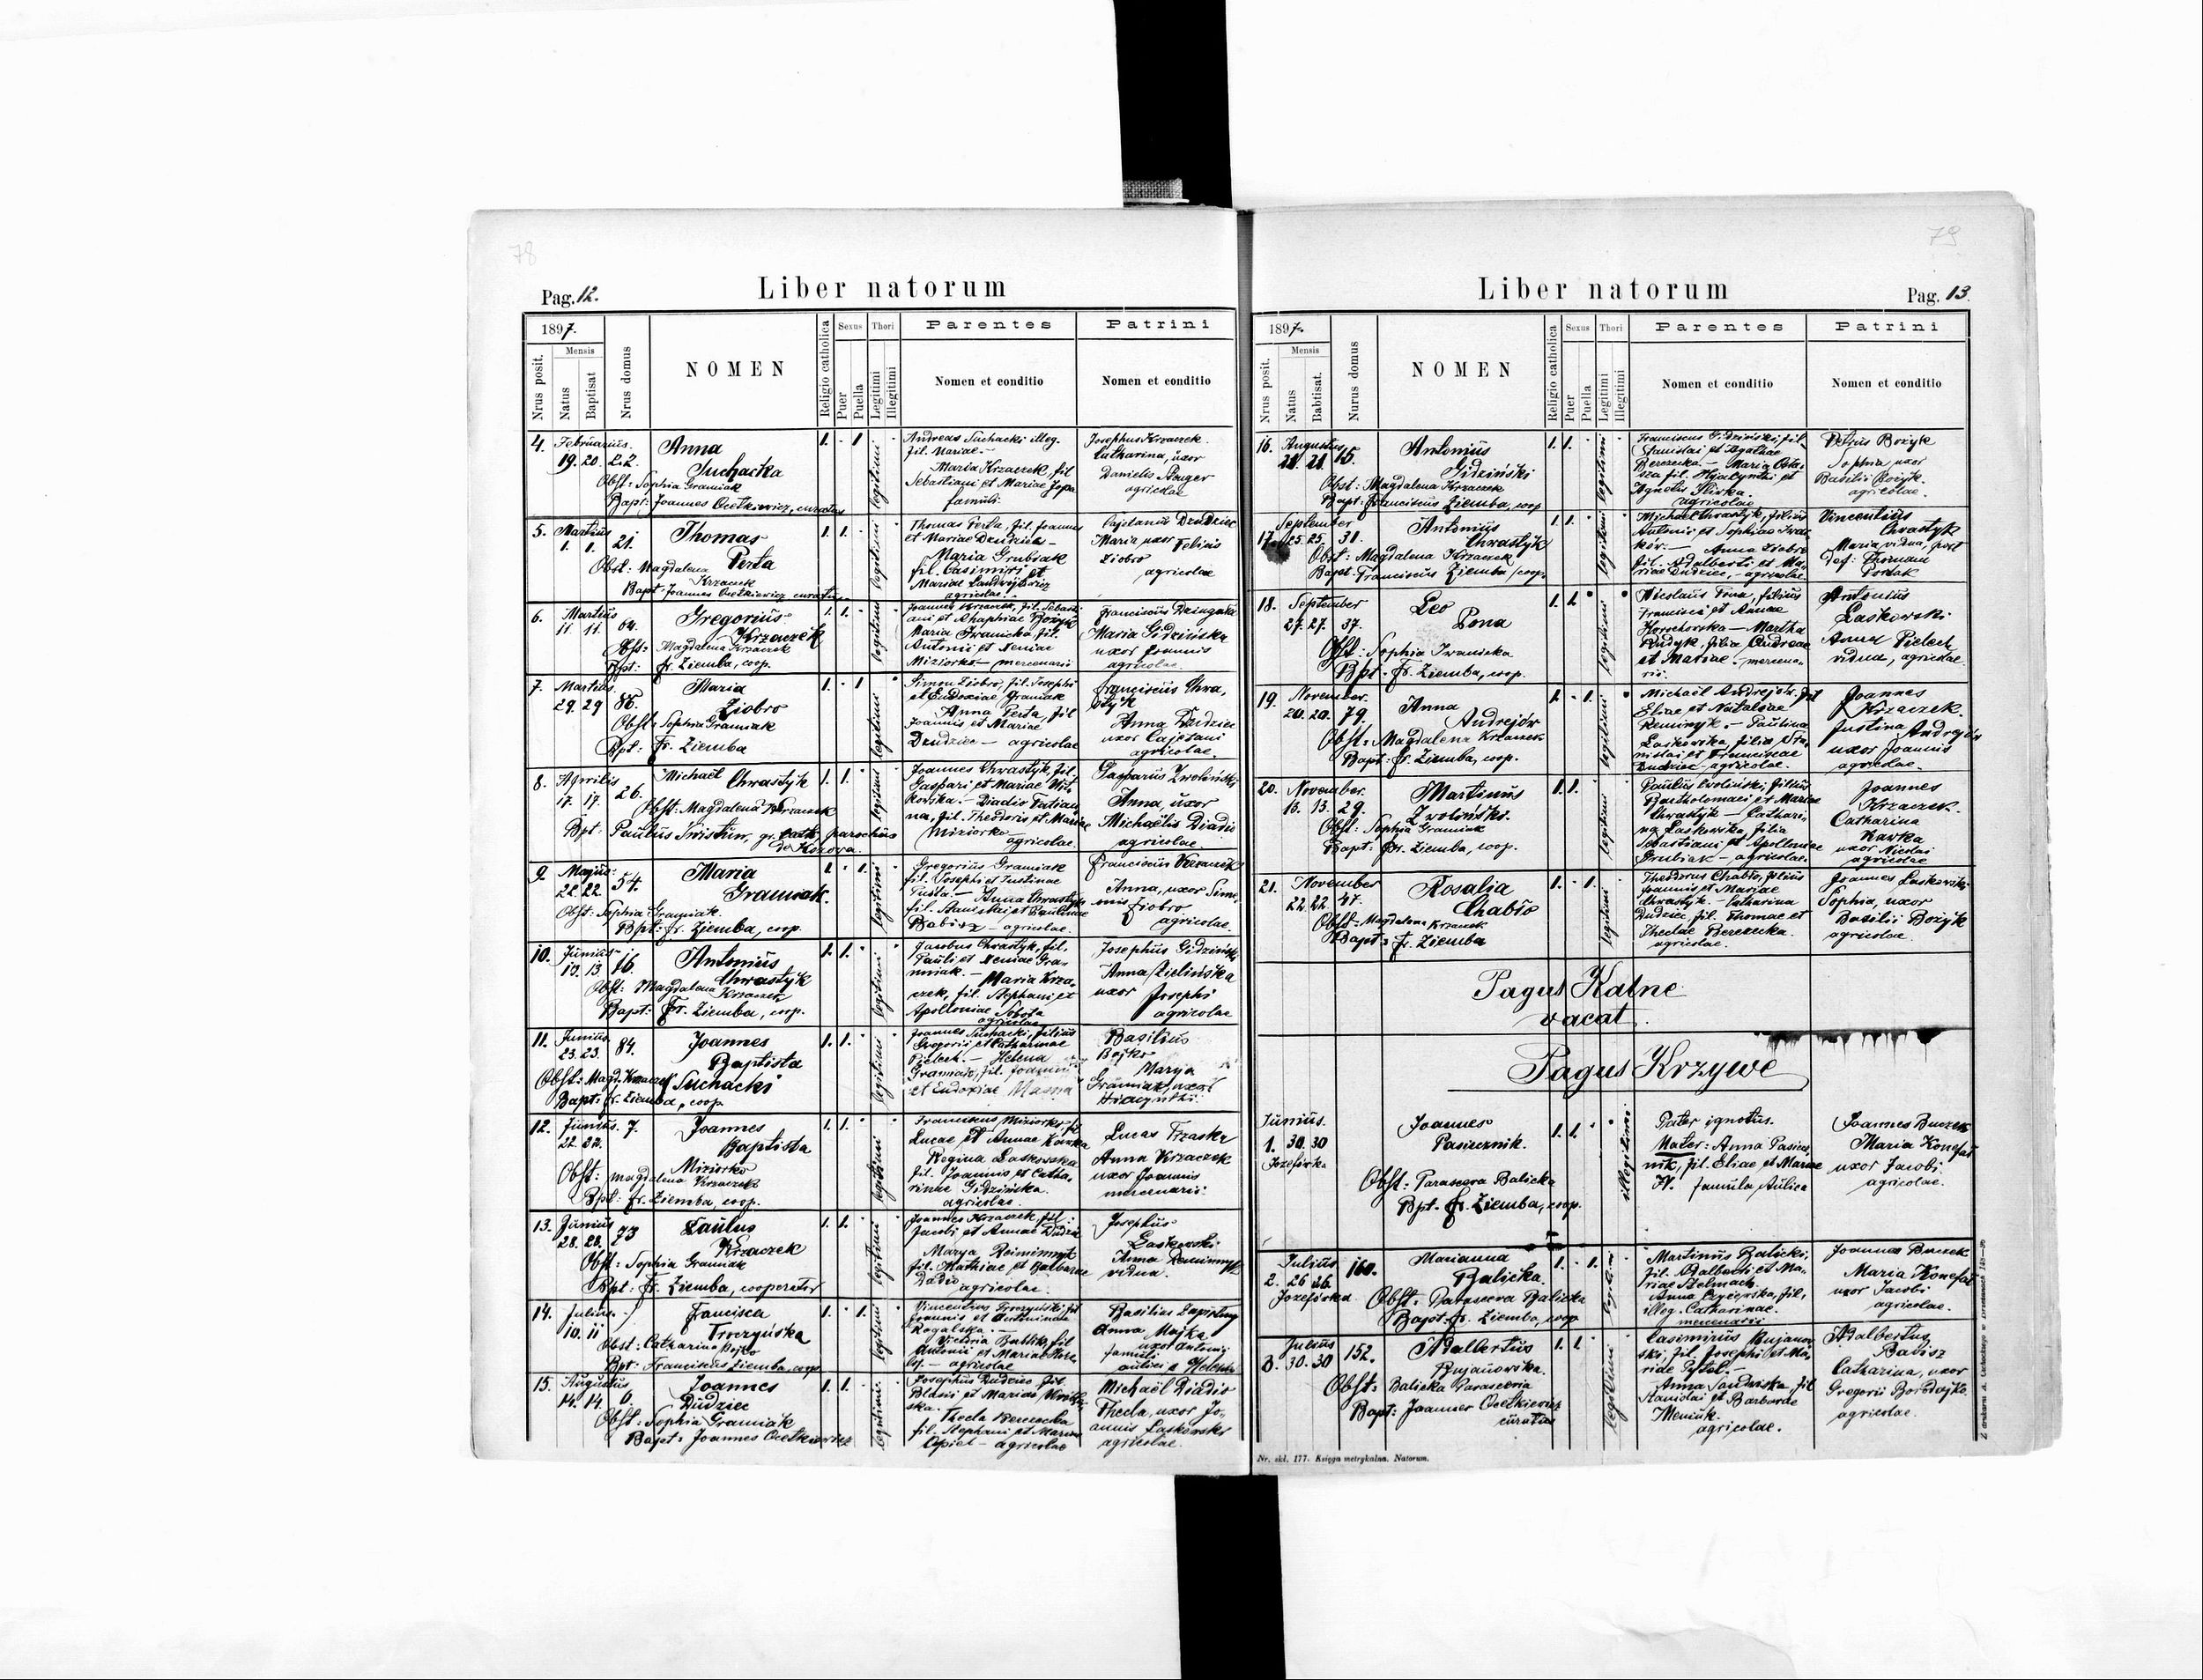 78
Liber natorum
Pag. 12.
1897.
Nrus posit.
Mensis
Natus
Baptisat
Nrus domus
NOMEN
Religio catholica
Sexus
Puer
Puella
Thori
Legitimi
Illegitimi
Parentes
Nomen et conditio
Patrini
Nomen et conditio
4. Februarius
19. 20. 22.
Anna
Suchacka
Obst: Sophia Gramiak
Bapt: Joannes Ocetkiewicz, curatus
1. - 1
legitimi
Andreas Suchacki illeg.
fil. Mariae.-
Maria Krzaczek, fil
Sebastiani et Mariae
famuli
Josephus Krzaczek.
Catharina, uxor
Danielis
agricolae
5. Martius
1. 1. 21.
Thomas
Perta
Obst: Magdalena
Krzaczek
Bapt: Joannes Ocetkiewicz curatus
1. 1.
legitimi
Thomas Perta, fil. Joannis
et Mariae Dzudziec -
Maria Grubiak
fil. Casimiri et
Mariae
agricolae.
Cajetanus Dzudziec
Maria uxor
Ziobro
agricolae
6. Martius
11. 11. 64.
Gregorius
Krzaczek
Obst: Magdalena Krzaczek
Bpt: Fr. Ziemba, coop.
1. 1.
legitimi
Joannes Krzaczek, fil. Sebasti
ani et Bożyk
Maria Iwanicka fil.
Antonii et Xeniae
Miziorko - mercenarii
Franciscus
Maria Gidzińska
uxor Joannis
agricolae.
7. Martius
29. 29 86.
Maria
Ziobro
Obst: Sophia Gramiak
Bpt: Fr. Ziemba
1. - 1
legitimi
Simon Ziobro, fil. Josephi
et Eudoxiae Gramiak
Anna Perta, fil
Joannis et Mariae
Dzudziec - agricolae
Franciscus Chra,
styk
Anna Dzudziec
uxor Cajetani
agricolae.
8. Aprilis
17. 17. 26.
Michael Chrastyk
Obst: Magdalena Krzaczek
Bpt: Paulus Swistun, gr. cath. parochus
de Kozowa.
1. 1.
legitimi
Joannes Chrastyk, fil.
Gaspari et Mariae Wit
kowska. - Diadio Tatian
na, fil. Theodoris et Mariae
Miziorko
agricolae.
Gasparus Zwoliński
Anna, uxor
Michaëlis Diadio
agricolae
9. Majus
22. 22. 54.
Maria
Gramiak.
Obst: Sophia Gramiak.
Bpt: Fr. Ziemba, coop.
1. - 1.
legitimi
Gregorius Gramiak
fil. Josephi et Justinae
Anna Chrastyk
fil. Stanislai et Paulinae
Babisz - agricolae.
Franciscus Krzaczek
Anna, uxor Simo,
nis Ziobro
agricolae.
10. Junius
13. 13 16.
Antonius
Chrastyk
Obst: Magdalena Krzaczek
Bapt: Fr. Ziemba, coop.
1. 1.
legitimi
Jacobus Chrastyk, fil.
Pauli et Xeniae Gra-
miak. - Maria Krza,
czek, fil. Stephani et
Apolloniae Sobota
agricolae
Josephus Gidziński
Anna Zielińska
uxor Josephi
agricolae
11. Junius.
23. 23. 84.
Joannes
Baptista
Suchacki
Obst: Magd. Krzaczek
Bapt: Fr. Ziemba, coop.
1. 1.
legitimi
Joannes Suchacki, filius
Gregorii et Catharinae
Pielech. - Helena
Gramiak, fil. Joannis
et Eudoxiae
Basilius
Bojko
Marya
Gramiak, uxor
Hiacynthi.
12. Junius. 7.
22. 22.
Joannes
Baptista
Miziorko
Obst: Magdalena Krzaczek
Bpt: Fr. Ziemba, coop.
1. 1.
legitimi
Franciscus Miziorko, fil
Lucae et Annae Kawka
Regina Laskowska
fil. Joannis et Catha,
rinae Gidzińska.
agricolae.
Lucas Trzaska
Anna Krzaczek
uxor Joannis
mercenarii.
13. Junius
28. 28. 73
Paulus
Krzaczek
Obst: Sophia Gramiak
Bpt: Fr. Ziemba, cooperator
1. 1.
legitimi
Joannes Krzaczek fil:
Jacobi et Annae
Marya
fil. Mathiae et Barbarae
Dadio
agricolae.
Josephus
Laskowski
Anna
vidua.
14. Julius
10. 11
Francisca
Troczyńska
Obst: Catharina Bojko
Bpt: Franciscus Ziemba, coop
1. 1.
legitimi
Vincentius Troczyński, fil
Joannis et Antoninae
Rogalska. -
Victoria Bublik, fil
Antonii et Mariae
- agricolae
Basilius
Anna Majka
uxor Antonij
famuli
aulici a
15. Augustus
14. 14. 6.
Joannes
Dudziec
Obst: Sophia Gramiak
Bapt: Joannes Ocetkiewicz
1. 1.
legitimi.
Josephus Dudziec fil.
Blasii et Mariae
ska.
Thecla Berezecka
fil. Stephani et Mariae
Opiel - agricolae
Michaël Diadio
Thecla, uxor Jo,
annis Laskowski
agricolae.
79
Liber natorum
Pag. 13
1897.
Nrus posit.
Mensis
Natus
Babtisat.
Nurus domus
NOMEN
Religio catholica
Sexus
Puer
Puella
Thori
Legitimi
Illegitimi
Parentes
Nomen et conditio
Patrini
Nomen et conditio
16. Augustus
21. 21. 15.
Antonius
Gidziński
Obst: Magdalena Krzaczek
Bapt: Franciscus Ziemba, coop
1. 1.
legitimi
Franciscus Gidziński, fil
Stanislai et Agathae
Berezecka. - Maria Osta,
sza, fil. Hyacynthi et
Agnetis Sliwka.
agricolae
Petrus Bożyk
Sophia uxor
Basilii Bożyk.
agricolae.
17. September
25. 25. 31.
Antonius
Chrastyk
Obst: Magdalena Krzaczek
Bapt. Franciscus Ziemba /coop.
1. 1.
legitimi
Michael Chrastyk, filius
Antonii et Sophiae
Anna Ziobro
fil. Adalberti et Ma,
riae Dudziec, - agricolae.
Vincentius
Chrastyk
Maria vidua, post
def: Thomam
18. September
27. 27. 37.
Leo
Pona
Obst: Sophia Iwanicka
Bpt. Fr. Ziemba, coop.
1. 1.
legitimi
Nicolaus Pona, filius
Francisci et Annae
Horochowska - Martha
Rudyk, filia Andreae
et Mariae - mercena,
rii.
Antonius
Laskowski
Anna Pielech
vidua, agricolae.
19. November
20. 20. 79.
Anna
Andrejów
Obst: Magdalena Krzaczek
Bapt: Fr. Ziemba, coop.
1. - 1.
legitimi
Michaël Andrejów, fil
Eliae et Nataliae
Paulina
Laskowska, filia
et Franciscae
Dudziec - agricolae.
Joannes
Krzaczek.
Justina Andrejów
uxor Joannis
agricolae.
20. November
13. 13. 29.
Martinus
Zwoliński.
Obst: Sophia Gramiak
Bapt: Fr. Ziemba, coop.
1. 1.
legitimi
Paulus Zwoliński, filius
Bartholomaei et Mariae
Chrastyk - Cathari,
na Laskowska, filia
Sebastiani et Apolloniae
Grubiak - agricolae.
Joannes
Krzaczek.
Catharina
Kawka
uxor Nicolai
agricolae
21. November
22. 22. 47.
Rosalia
Chabło
Obst: Magdalena Krzaczek
Bapt: Fr. Ziemba
1. - 1.
legitimi
Theodorus Chabło, filius
Joannis et Mariae
Chrastyk. - Catharina
Dudziec, fil. Thomae et
Theclae Berezecka.
agricolae.
Joannes Laskowski
Sophia, uxor
Basilii Bożyk
agricolae.
Pagus Kalne
vacat.
Pagus Krzywe
Junius.
1. 30. 30
Jozefówka
Joannes
Pasiecznik.
Obst: Parasceva Balicka
Bpt. Fr. Ziemba, coop.
1. 1.
illegitimi
Pater ignotus.
Mater: Anna Pasiecz,
nik, fil. Eliae et Mariae
N. famula aulica
Joannes Buczek
Maria Konefał
uxor Jacobi
agricolae.
2. Julius
26 26. 160.
Jozefówka
Marianna
Balicka.
Obst: Parasceva Balicka
Bapt. Fr. Ziemba, coop
1. - 1.
legitimi
Martinus Balicki,
fil. Adalberti et Ma,
riae Stelmach.
Anna fil,
illeg. Catharinae.
mercenarii
Joannes Buczek
Maria Konefał
uxor Jacobi
agricolae.
3. Julius
30. 30 152.
Adalbertus
Bujanowska.
Obst: Balicka Parasceva
Bapt: Joannes Ocetkiewicz
curatus
1. 1.
legitimi
Casimirus Bujanow
ski, fil. Josephi et Ma,
riae Pytel. -
Anna Sandurska fil
Stanislai et Barbarae
Meniuk.
agricolae.
Adalbertus
Babisz
Catharina, uxor
Gregorii
agricolae.
Nr. skl. 177. Księga metrykalna. Natorum.